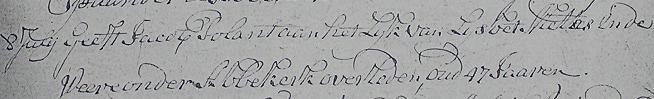 8 July Geeft Jacob Polant aan het Lijk van Lisbet Metes in de
Weere onder Abbekerk overleden, oud 47 Jaaren.